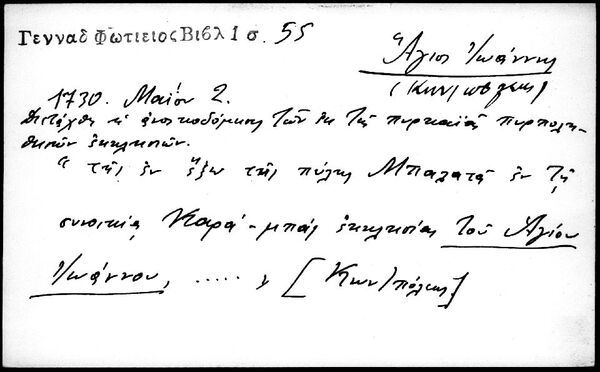 Γενναδ Φωτιειος Βιβλ 1 σ. 55
Ἅγιος Ἰωάννης
(Κων/πόλεως)
1730. Μαΐου 2.
Διετάχθη ἡ ἀνοικοδόμησις τῶν ἐκ τῆς πυρκαϊᾶς πυρπολη-
θεισῶν ἐκκλησιῶν.
“ τῆς ἐν ἔξω τῆς πύλης Μπαλατᾶ ἐν τῇ
συνοικίᾳ Καρά-μπάς ἐκκλησίας τοῦ Ἁγίου
Ἰωάννου, ..... , [Κων/πόλεως]